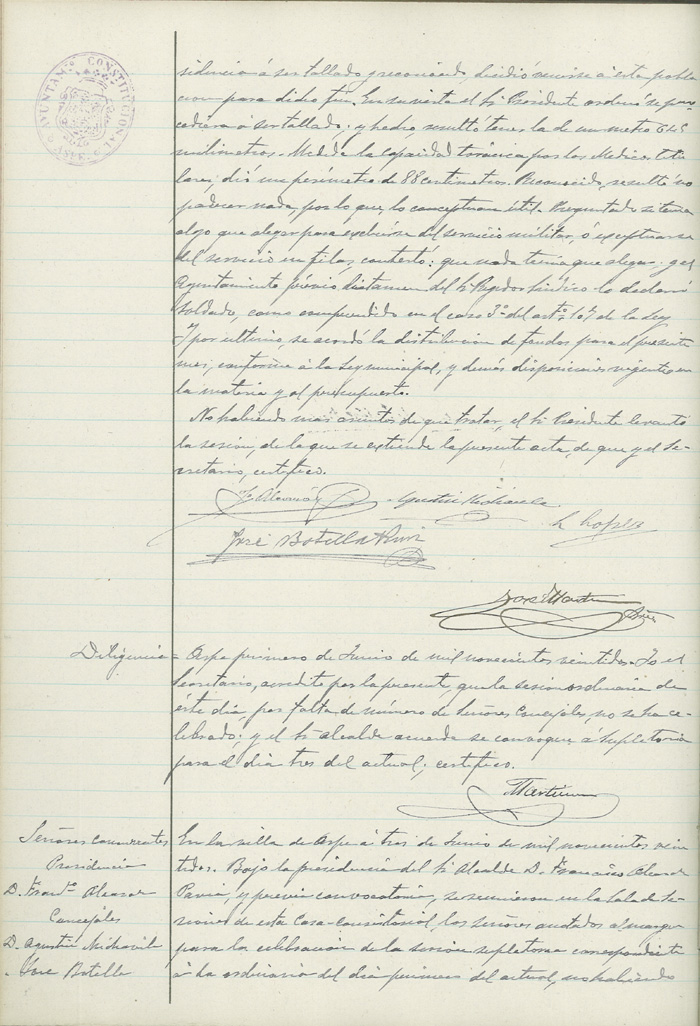 AYUNTAMTO CONSTITUCIONAL ASPE
sidencia á ser tallado y reconocido, decidió venirse á esta pobla
cion para dicho fin. En su vista el Sr. Presidente ordenó se pro-
cediera á ser tallado; y hecho, resultó tener la de un metro 645
milimetros. Medida la capacidad torácica por los Medicos titu
lares, dió un perímetro de 88 centimetros. Reconocido, resultó no
padecer nada, por lo que, lo conceptuan útil. Preguntado si tenia
algo que alegar para excluirse del servicio militar, ó exceptuarse
del servicio en filas, contestó: que nada tenia que alegar; y el
Ayuntamiento prévio dictamen del Sr. Regidor Sindico lo declaró
soldado, como comprendido en el caso 3º del artº 107 de la Ley
Y por ultimo, se acordó la distribucion de fondos para el presente
mes, conforme á la Ley municipal, y demás disposiciones vigentes en
la materia y al presupuesto.
No habiendo mas asuntos de que tratar, el Sr. Presidente levantó
la sesion, de la que se extiende la presente acta, de que yo el Se-
cretario, certifico.
José Botella
L. Lopez
José Martin
Diligencia = Aspe primero de Junio de mil novecientos veintidos. Yo el
Secretario, acredito por la presente, que la sesion ordinaria de
éste dia, por falta de número de Señores Concejales, no se ha ce-
lebrado; y el Sr. Alcalde acuerda se convoque á supletoria
para el dia tres del actual; certifico.
Señores Concurrentes
Presidencia
D. Francº Alcaraz
Concejales
D. Agustin
" José Botella
En la villa de Aspe á tres de Junio de mil novecientos vein
tidos. Bajo la presidencia del Sr. Alcalde D. Francisco Alcaraz
Pavia, y previa convocatoria, se reunieron en la Sala de Se-
siones de esta Casa-consistorial, los señores anotados al margen
para la celebracion de la sesion supletoria correspondiente
á la ordinaria del dia primero del actual, no habiendo